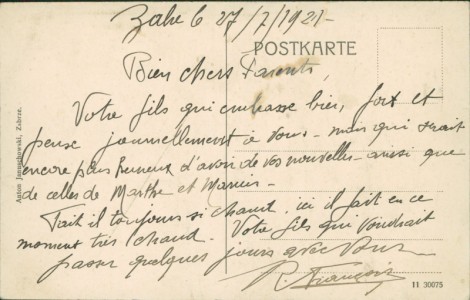 Zabe le 27/7/1921-
POSTKARTE
Bien chers Parents,
Votre fils qui embrasse bien fort et
pense journellement à vous - mais qui serait
encore plus heureux d'avoir de vos nouvelles - ainsi que
de celles de Marthe et Marius -
Fait il toujours si chaud, ici il fait en ce
moment très chaud. Votre fils qui voudrait
passer quelques jours avec vous -
R. François
Anton Zabrze.
11 30075